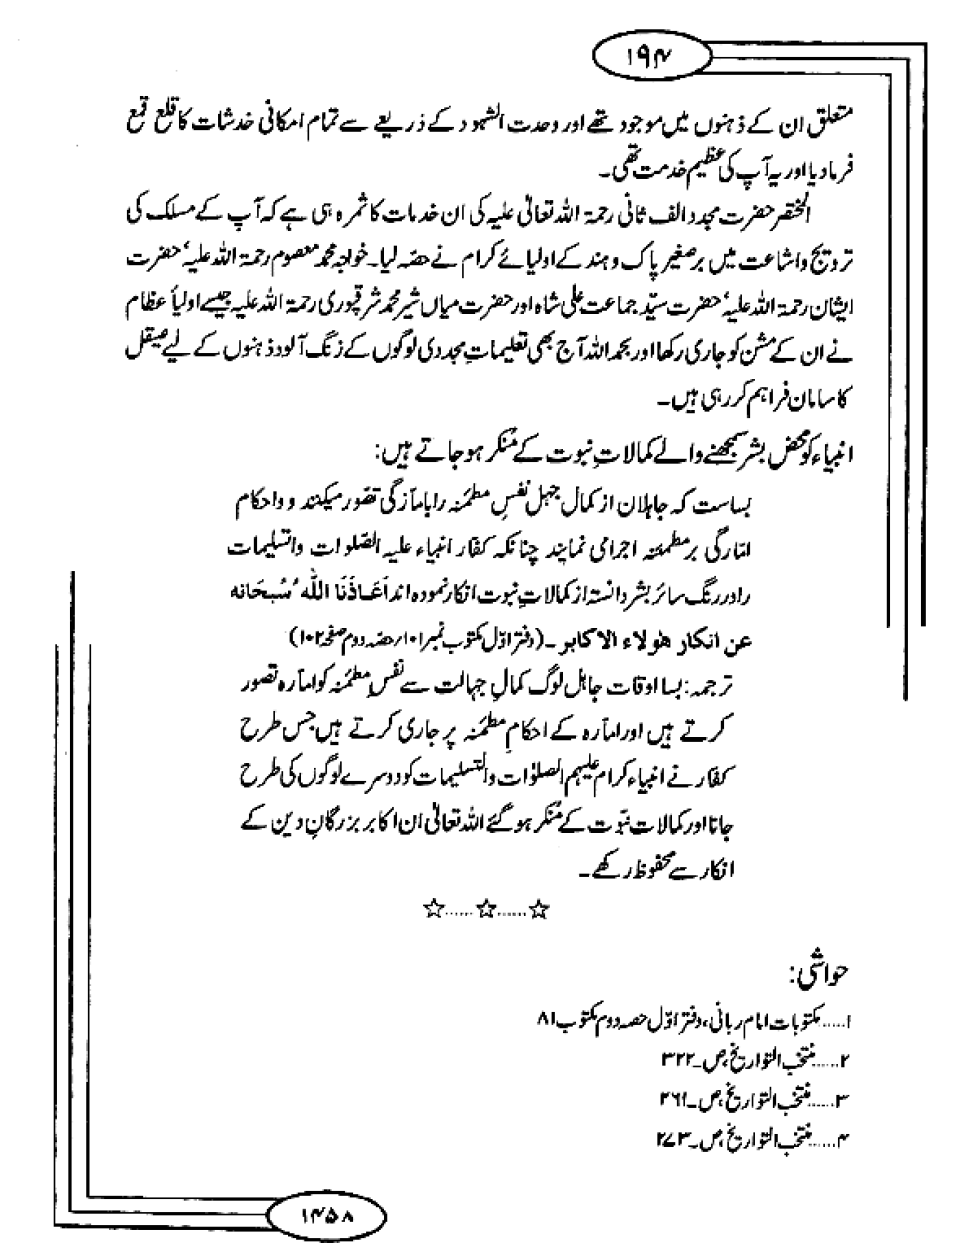 ۱۹۴
متعلق ان کے ذہنوں میں موجود تھے اور وحدت الشہود کے ذریعے سے تمام امکانی خدشات کا قلع قمع
فرما دیا اور یہ آپ کی عظیم خدمت تھی۔
المختصر حضرت مجدد الف ثانی رحمۃ اللہ تعالیٰ علیہ کی ان خدمات کا ثمرہ ہی ہے کہ آپ کے مسلک کی
ترویج واشاعت میں برصغیر پاک و ہند کے اولیائے کرام نے حصّہ لیا۔ خواجہ محمد معصوم رحمۃ اللہ علیہ‘ حضرت
ایشان رحمۃ اللہ علیہ‘ حضرت سیّد جماعت علی شاہ اور حضرت میاں شیر محمد شرقپوری رحمۃ اللہ علیہ جیسے اولیأ عظام
نے ان کے مشن کو جاری رکھا اور بحمد اللہ آج بھی تعلیماتِ مجددی لوگوں کے زنگ آلود ذہنوں کے لیے صیقل
کا سامان فراہم کر رہی ہیں۔
انبیاء کو محض بشر سمجھنے والے کمالاتِ نبوت کے مُنکر ہو جاتے ہیں:
بساست کہ جاہلان از کمال جہل نفسِ مطمئنہ را باماّزگی تصّور میکنند و واحکام
امّارگی بر مطمئنہ اجرامی نمایند چنانکہ کفار انبیاء علیہ الصّلوات والتسلیمات
را در رنگ سائر بشر دانستہ از کمالاتِ نبوت انکار نمودہ اند اَعَاذَنَا اللّٰہُ سُبحَانہ
عن انکار ھٰولاء الاکابر ۔(دفتر اوّل مکتوب نمبر ۱۰۱/حصّہ دوم صفحہ ۱۰۲)
ترجمہ: بسا اوقات جاہل لوگ کمالِ جہالت سے نفسِ مطمئنہ کو امّارہ تصور
کرتے ہیں اور امّارہ کے احکامِ مطمئنہ پر جاری کرتے ہیں جس طرح
کفار نے انبیاء کرام علیہم الصلوٰات والتسلیمات کو دوسرے لوگوں کی طرح
جانا اور کمالات نبّوت کے مُنکر ہو گئے اللہ تعالیٰ ان اکابر بزرگانِ دین کے
انکار سے محفوظ رکھے۔
☆......☆......☆
حواشی:
۱.....مکتوبات امام ربانی، دفتر اوّل حصہ دوم مکتوب ۸۱
۲......منتخب التواریخ،ص۔۳۲۲
۳......منتخب التواریخ،ص۔۲۶۱
۴......منتخب التواریخ،ص۔۲۷۳
۱۴۵۸